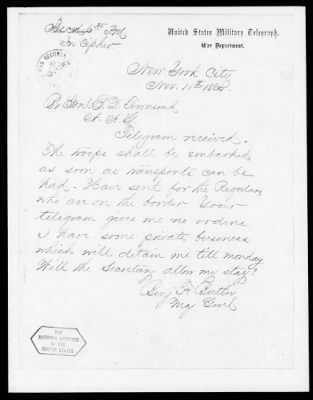 In Cepher
United States Military Telegraph.
War Department.
New York City
Nov. 11th 1864
Br Genl E. D. Townsend
A. A. G.
Telegram received.
The troops shall be embarked
as soon as transports can be
had. Have sent for the Regulars
who are on the border Your
telegram give me no orders
I have some private business
which will detain me till monday
Will the Secretary allow my stay?
Benj F. Butler
Maj Genl
THE
NATIONAL ARCHIVES
OF THE
UNITED STATES